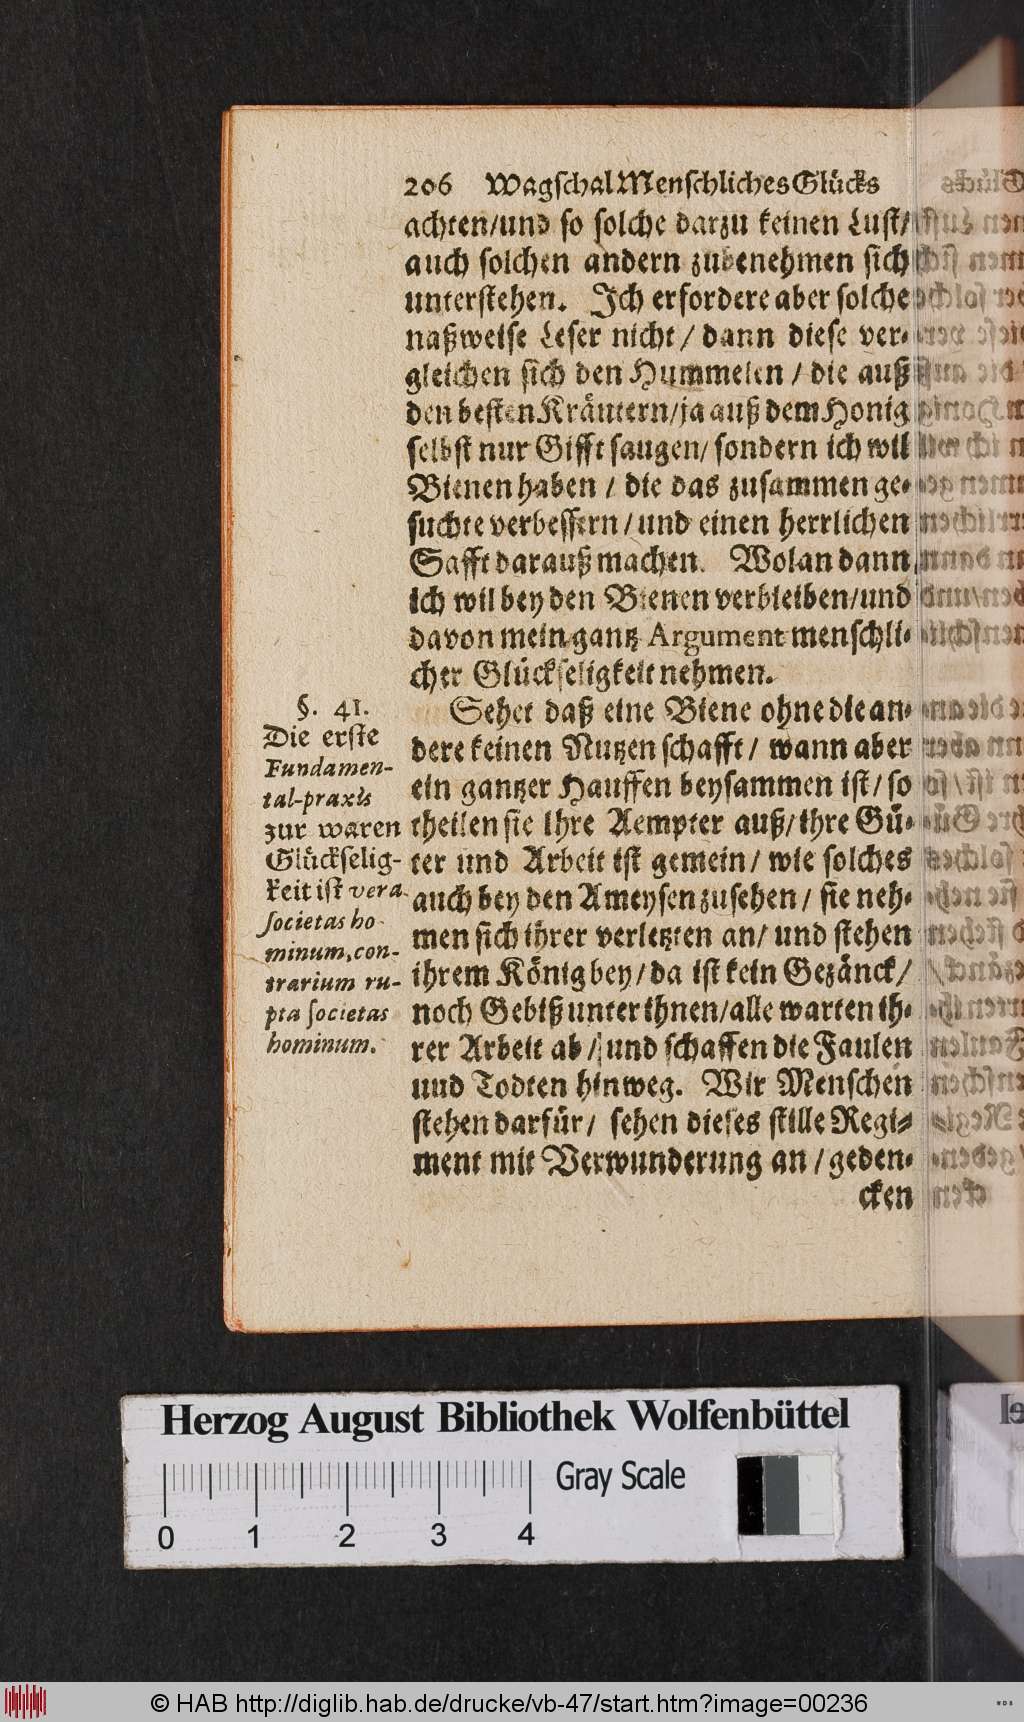 206 Wagschal Menschliches Glücks
achten/und so solche darzu keinen Lust/
auch solchen andern zubenehmen sich
unterstehen. Ich erfordere aber solche
naßweise Leser nicht/ dann diese ver-
gleichen sich den Hummelen / die auß
den besten Kräutern/ja auß dem Honig
selbst nur Gifft saugen/ sondern ich wil
Bienen haben / die das zusammen ge-
suchte verbessern / und einen herrlichen
Safft darauß machen. Wolan dann
ich wil bey den Bienen verbleiben/und
davon mein gantz Argument menschli-
cher Glückseligkeit nehmen.
§. 41.
Die erste
Fundamen-
tal-praxis
zur waren
Glückselig-
keit ist vera
societas ho-
minum, con-
trarium ru-
pta societas
hominum.
Sehet daß eine Biene ohne die an-
dere keinen Nutzen schafft / wann aber
ein gantzer Hauffen beysammen ist / so
theilen sie ihre Aempter auß/ihre Gü-
ter und Arbeit ist gemein / wie solches
auch bey den Ameysen zusehen / sie neh-
men sich ihrer verletzten an/ und stehen
ihrem König bey / da ist kein Gezänck /
noch Gebiß unter ihnen/alle warten ih-
rer Arbeit ab / und schaffen die Faulen
und Todten hinweg. Wir Menschen
stehen darfür / sehen dieses stille Regi-
ment mit Verwunderung an / geden-
cken
Herzog August Bibliothek Wolfenbüttel
Gray Scale
0 1 2 3 4
© HAB http://diglib.hab.de/drucke/vb-47/start.htm?image=00236